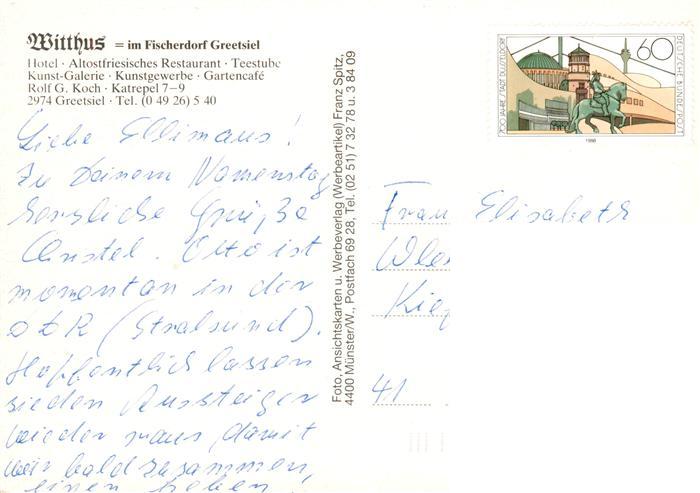 Witthus = im Fischerdorf Greetsiel
Hotel · Altostfriesisches Restaurant · Teestube
Kunst-Galerie · Kunstgewerbe · Gartencafé
Rolf G. Koch · Katrepel 7–9
2974 Greetsiel · Tel. (0 49 26) 5 40
Liebe Ellimaus!
Zu Deinem Namenstag
herzliche Grüße
Christel. Otto ist
momentan in der
DDR (Stralsund).
Hoffentlich lassen
sie den Aussteiger
wieder raus, damit
wir bald zusammen,
einen heben
Foto, Ansichtskarten u. Werbeverlag (Werbeartikel) Franz Spitz,
4400 Münster/W., Postfach 69 28, Tel. (02 51) 7 32 78 u. 3 84 09
700 JAHRE STADT DÜSSELDORF
60
DEUTSCHE BUNDESPOST
1988
Frau Elisabeth
41